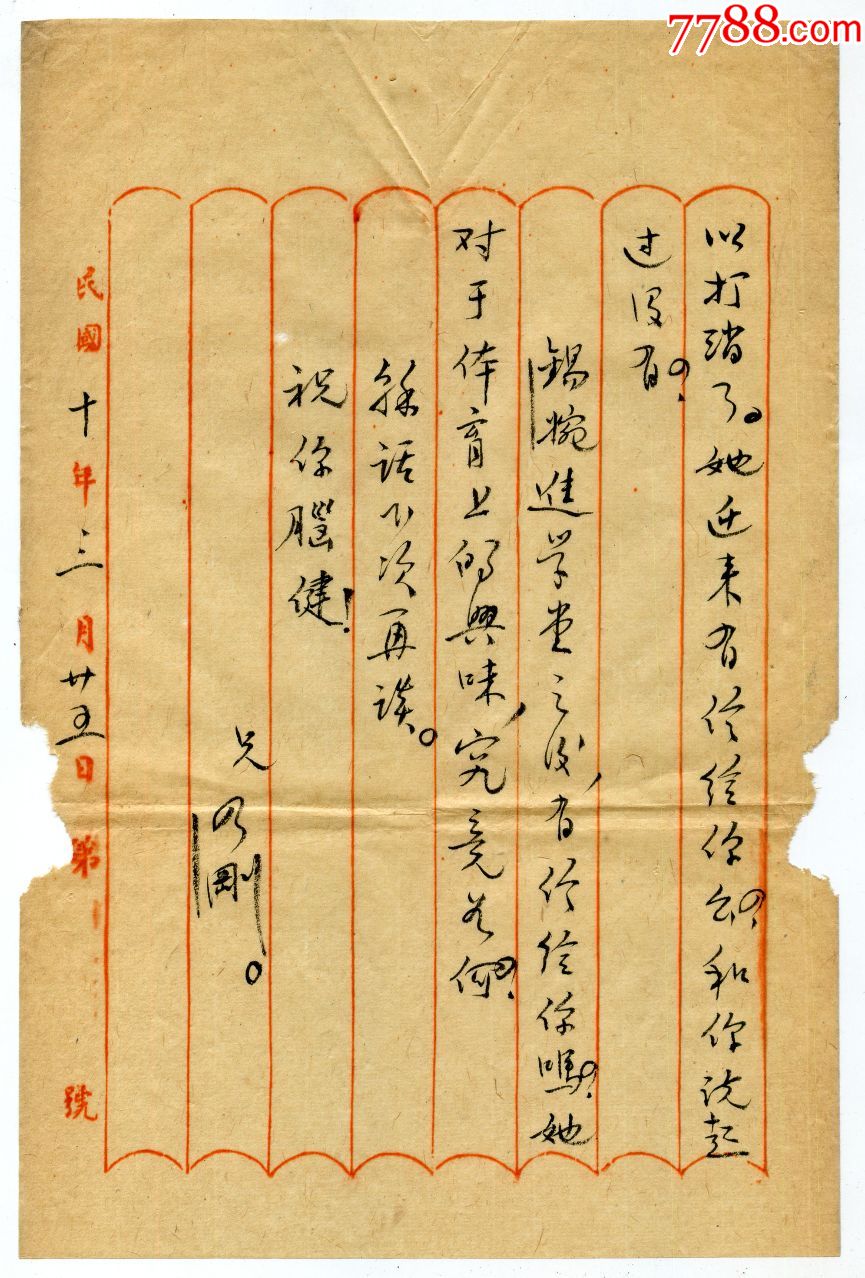 7788.com
以打消了。她近来有信给你么？和你说起
过没有？
锡婉进学堂之后，有信给你吗？她
对于体育上的興味，究竟为何？
餘话下次再谈。
祝你腦健！
兄乃剛。
民國十年三月廿五日第 號